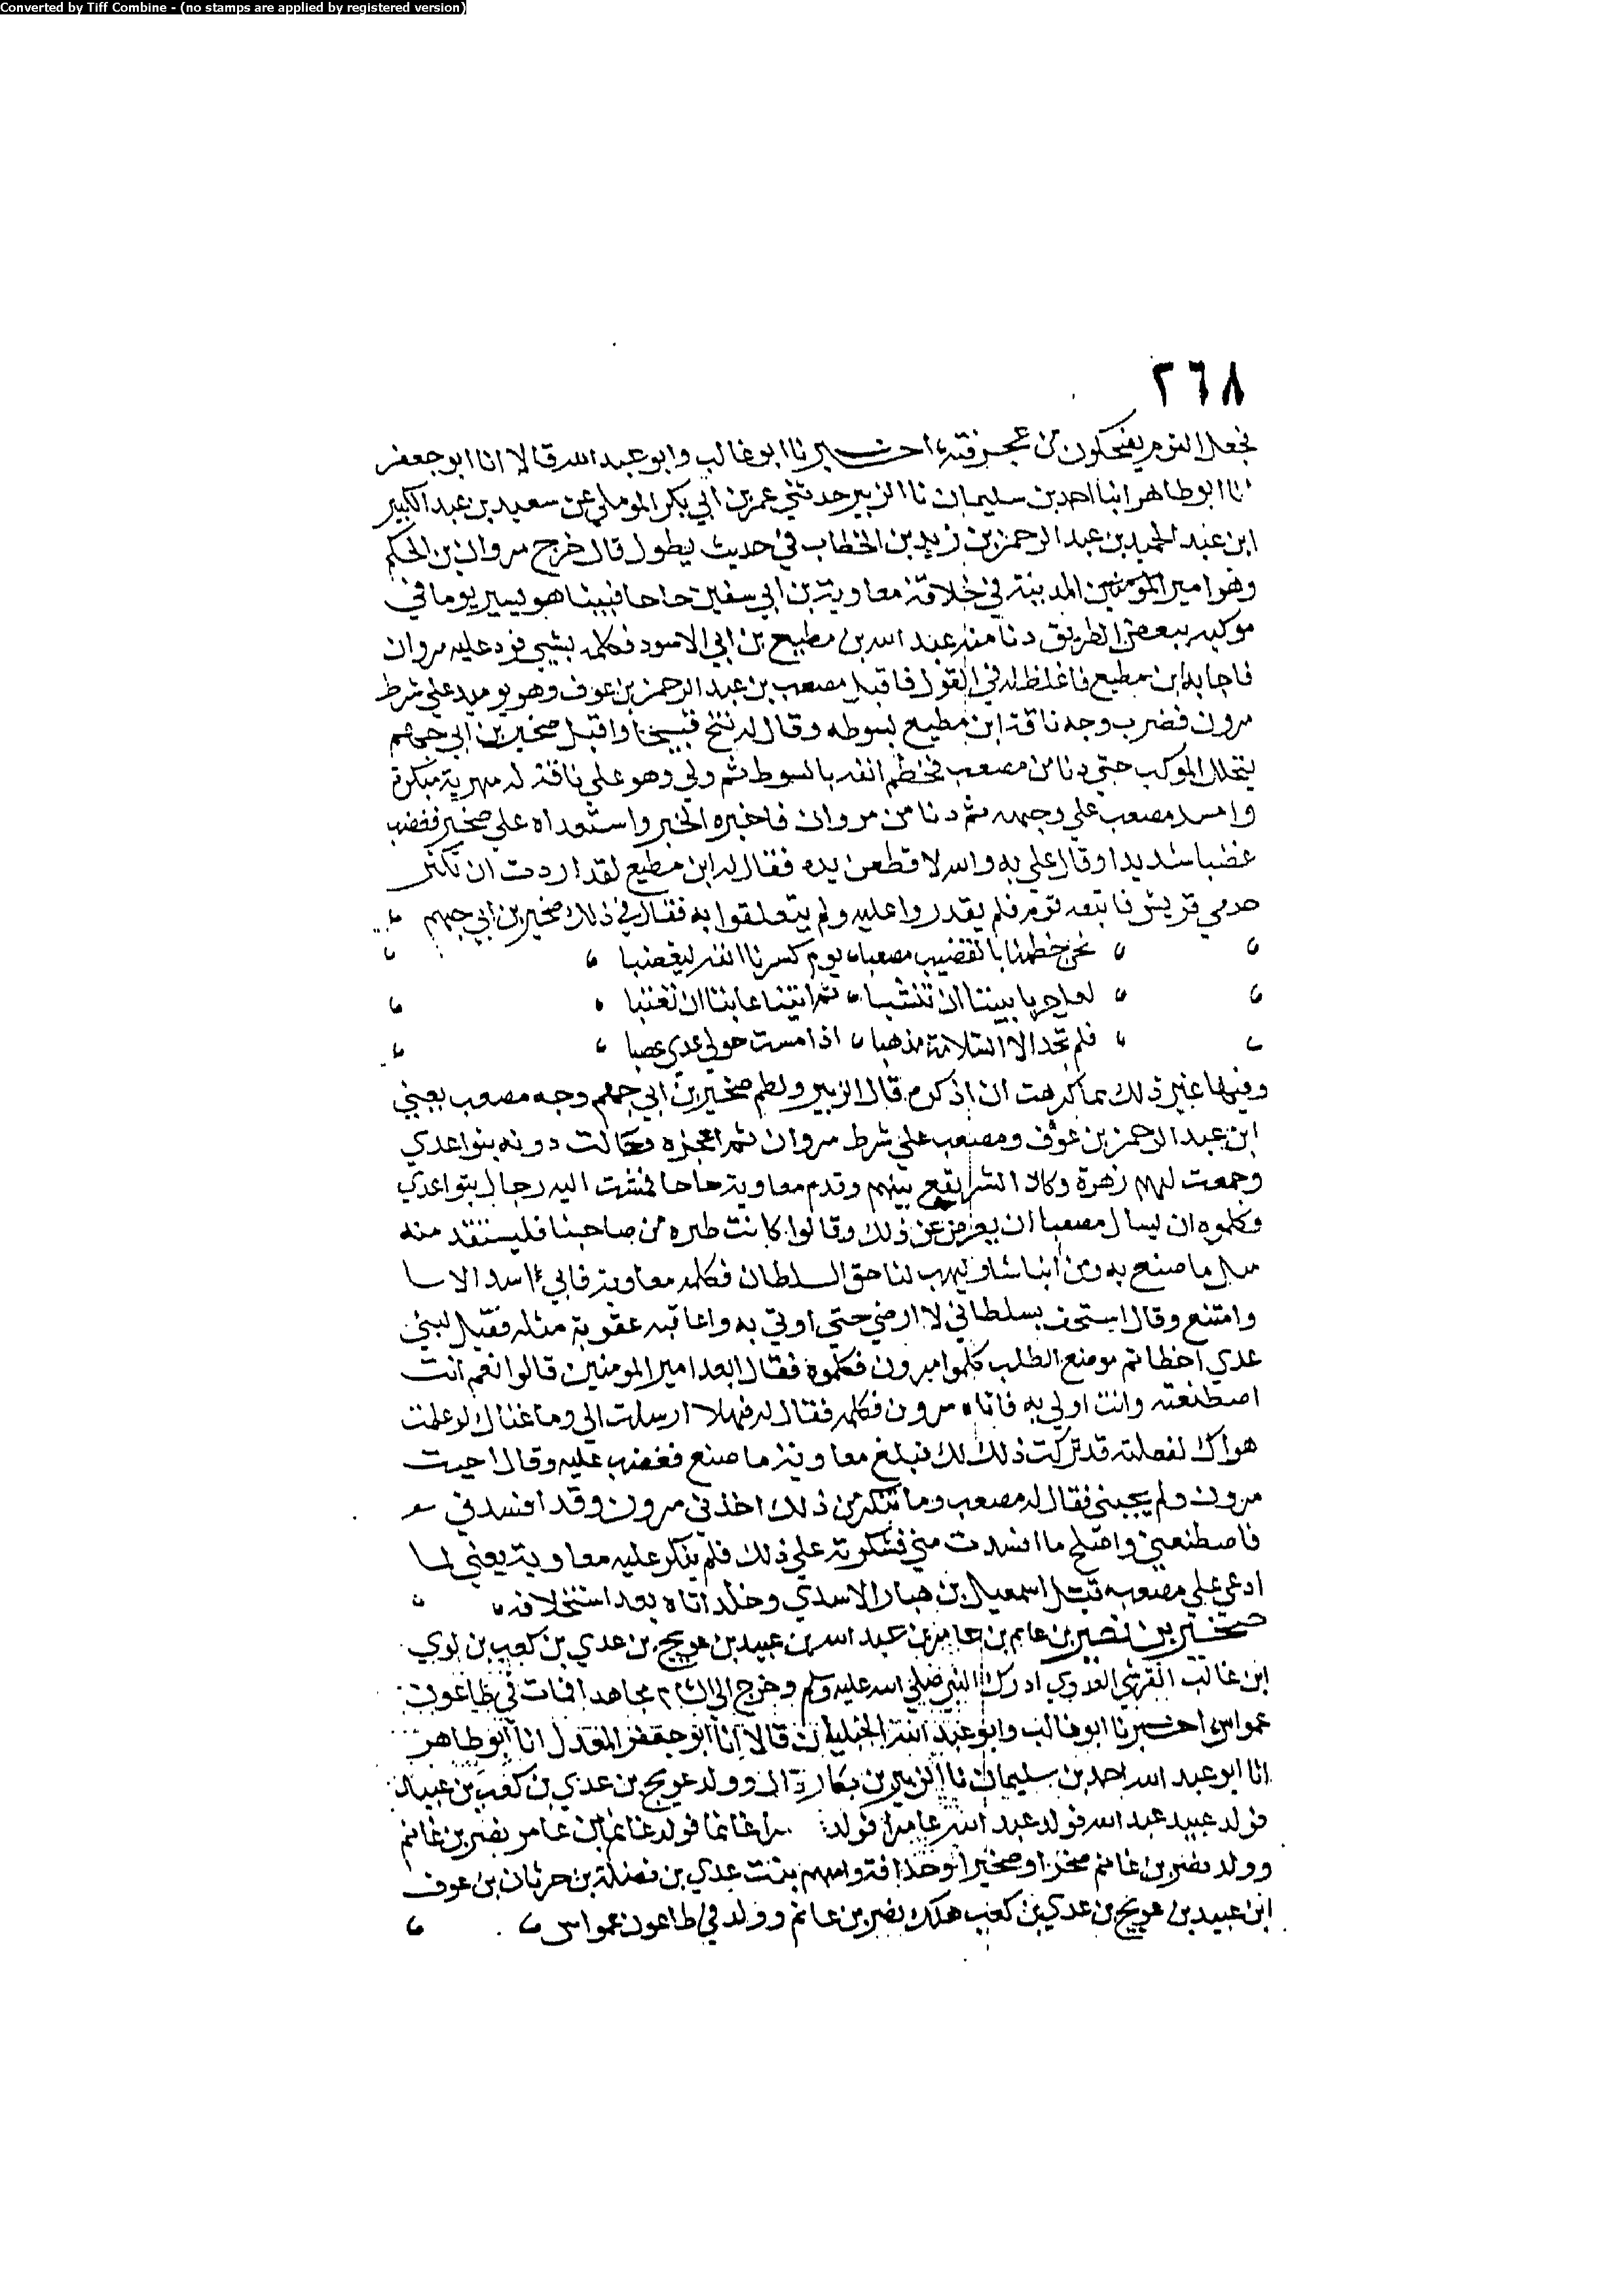 Converted by Tiff Combine - (no stamps are applied by registered version)
٢٦٨
فجعل القوم يضحكون من عجرفته اخبرنا ابو غالب وابو عبد الله قالا انا ابو جعفر
انا ابو طاهر انبا احمد بن سليمان نا الزبير حدثني عمر بن ابي بكر الموملي عن سعيد بن عبد الكبير
ابن عبد الحميد بن عبد الرحمن بن زيد بن الخطاب في حديث يطول قال خرج مروان بن الحكم
وهو امير المؤمنين المدينة في خلافة معاوية بن ابي سفين حاجا فبينا هو يسير يوما في
موكبه ببعض الطريق دنا منه عبد الله بن مطيع بن ابي الاسود فكلمه بشي فرد عليه مروان
فاجابه ابن مطيع فاغلظ له في القول فاقبل مصعب بن عبد الرحمن بن عوف وهو يوميد علي شرط
مرون فضرب وجه ناقة ابن مطيع بسوطه وقال له تنح فتنحا واقبل صخير بن ابي جهم
يتخلل الموكب حتي دنا من مصعب فخطم انفه بالسوط ثم ولي وهو علي ناقة له مهرية مبكرة
وامسد مصعب علي وجهه ثم دنا من مروان فاخبره الخبر واستعداه علي صخير فغضب
غضبا شديدا وقال علي به والله لاقطعن يده فقال له ابن مطيع لقد اردت ان تكثر
حدمي قريش فاتبعه قوم فلم يقدروا عليه ولم يتعلقوا به فقال في ذلك صخير بن ابي جهم
نحن خطمنا بالقضيب مصعبا يوم كسرنا انفه ليغضبا
لعل حربا بيننا ان تنشبا ثم اتينا عابنا ان تعتبا
فلم تجد الا السلامة مذهبا اذا مست حولي عدي عصبا
وفيها غير ذلك مما كرهت ان اذكره قال الزبير ولطم صخير بن ابي جهم وجه مصعب يعني
ابن عبد الرحمن بن عوف ومصعب علي شرط مروان ثم اعجزه وحالت دونه بنوا عدي
وجمعت لهم زهرة وكاد الشر يقع بينهم وقدم معاوية حاجا فمشت اليه رجال بنوا عدي
وكلموه ان يسال مصعبا ان يعرض عن ذلك وقالوا كانت طيره من صاحبنا فليستقد منه
مثل ما صنع به ومن ابنا شا ويهب لنا حق السلطان فكلمه معاوية فابي اسد الابا
وامتنع وقال استخف بسلطاني لا ارضي حتي اوتي به واعاقبه عقوبة مثله فقيل لبني
عدي اخطاتم موضع الطلب كلموا مرون فكلموه فقال ابعد امير المومنين قالوا نعم انت
اصطنعته وانت اولي به فاتاه مرون فكلمه فقال له فهلا ارسلت الي وما عناك لو علمت
هواك لفعلته قد تركت ذلك لك فبلغ معاوية ما صنع فغضب عليه وقال اجبت
مرون ولم يجبني فقال له مصعب وما تنكر من ذلك اخذني مرون وقد افسدني
فاصطنعني واصلح ما افسدت مني فشكرته علي ذلك فلم ينكر عليه معاوية يعني لما
ادعي علي مصعب قتل اسمعيل بن هبار الاسدي وخلد اتاه بعد استخلافه
صخير بن نصير بن غانم بن عامر بن عبد الله بن عبيد بن عويج بن عدي بن كعب بن لوي
ابن غالب القرشي العدوي ادرك النبي صلي الله عليه وسلم وخرج الي الشام مجاهدا فمات في طاعون
عمواس اخبرنا ابو غالب وابو عبد الله الحنبليان قالا انا ابو جعفر المعدل انا ابو طاهر
انا ابو عبد الله احمد بن سليمان نا الزبير بن بكار قال وولد عويج بن عدي بن كعب بن عبيد
فولد عبيد عبد الله فولد عبد الله عامرا فولد غانما فولد غانم بن عامر نصر بن غانم
وولد نصر بن غانم صخرا وصخيرا وحذافة وامهم بنت عدي بن نضلة بن حرثان بن عوف
ابن عبيد بن عويج بن عدي بن كعب هلك نصر بن غانم وولد في طاعون عمواس